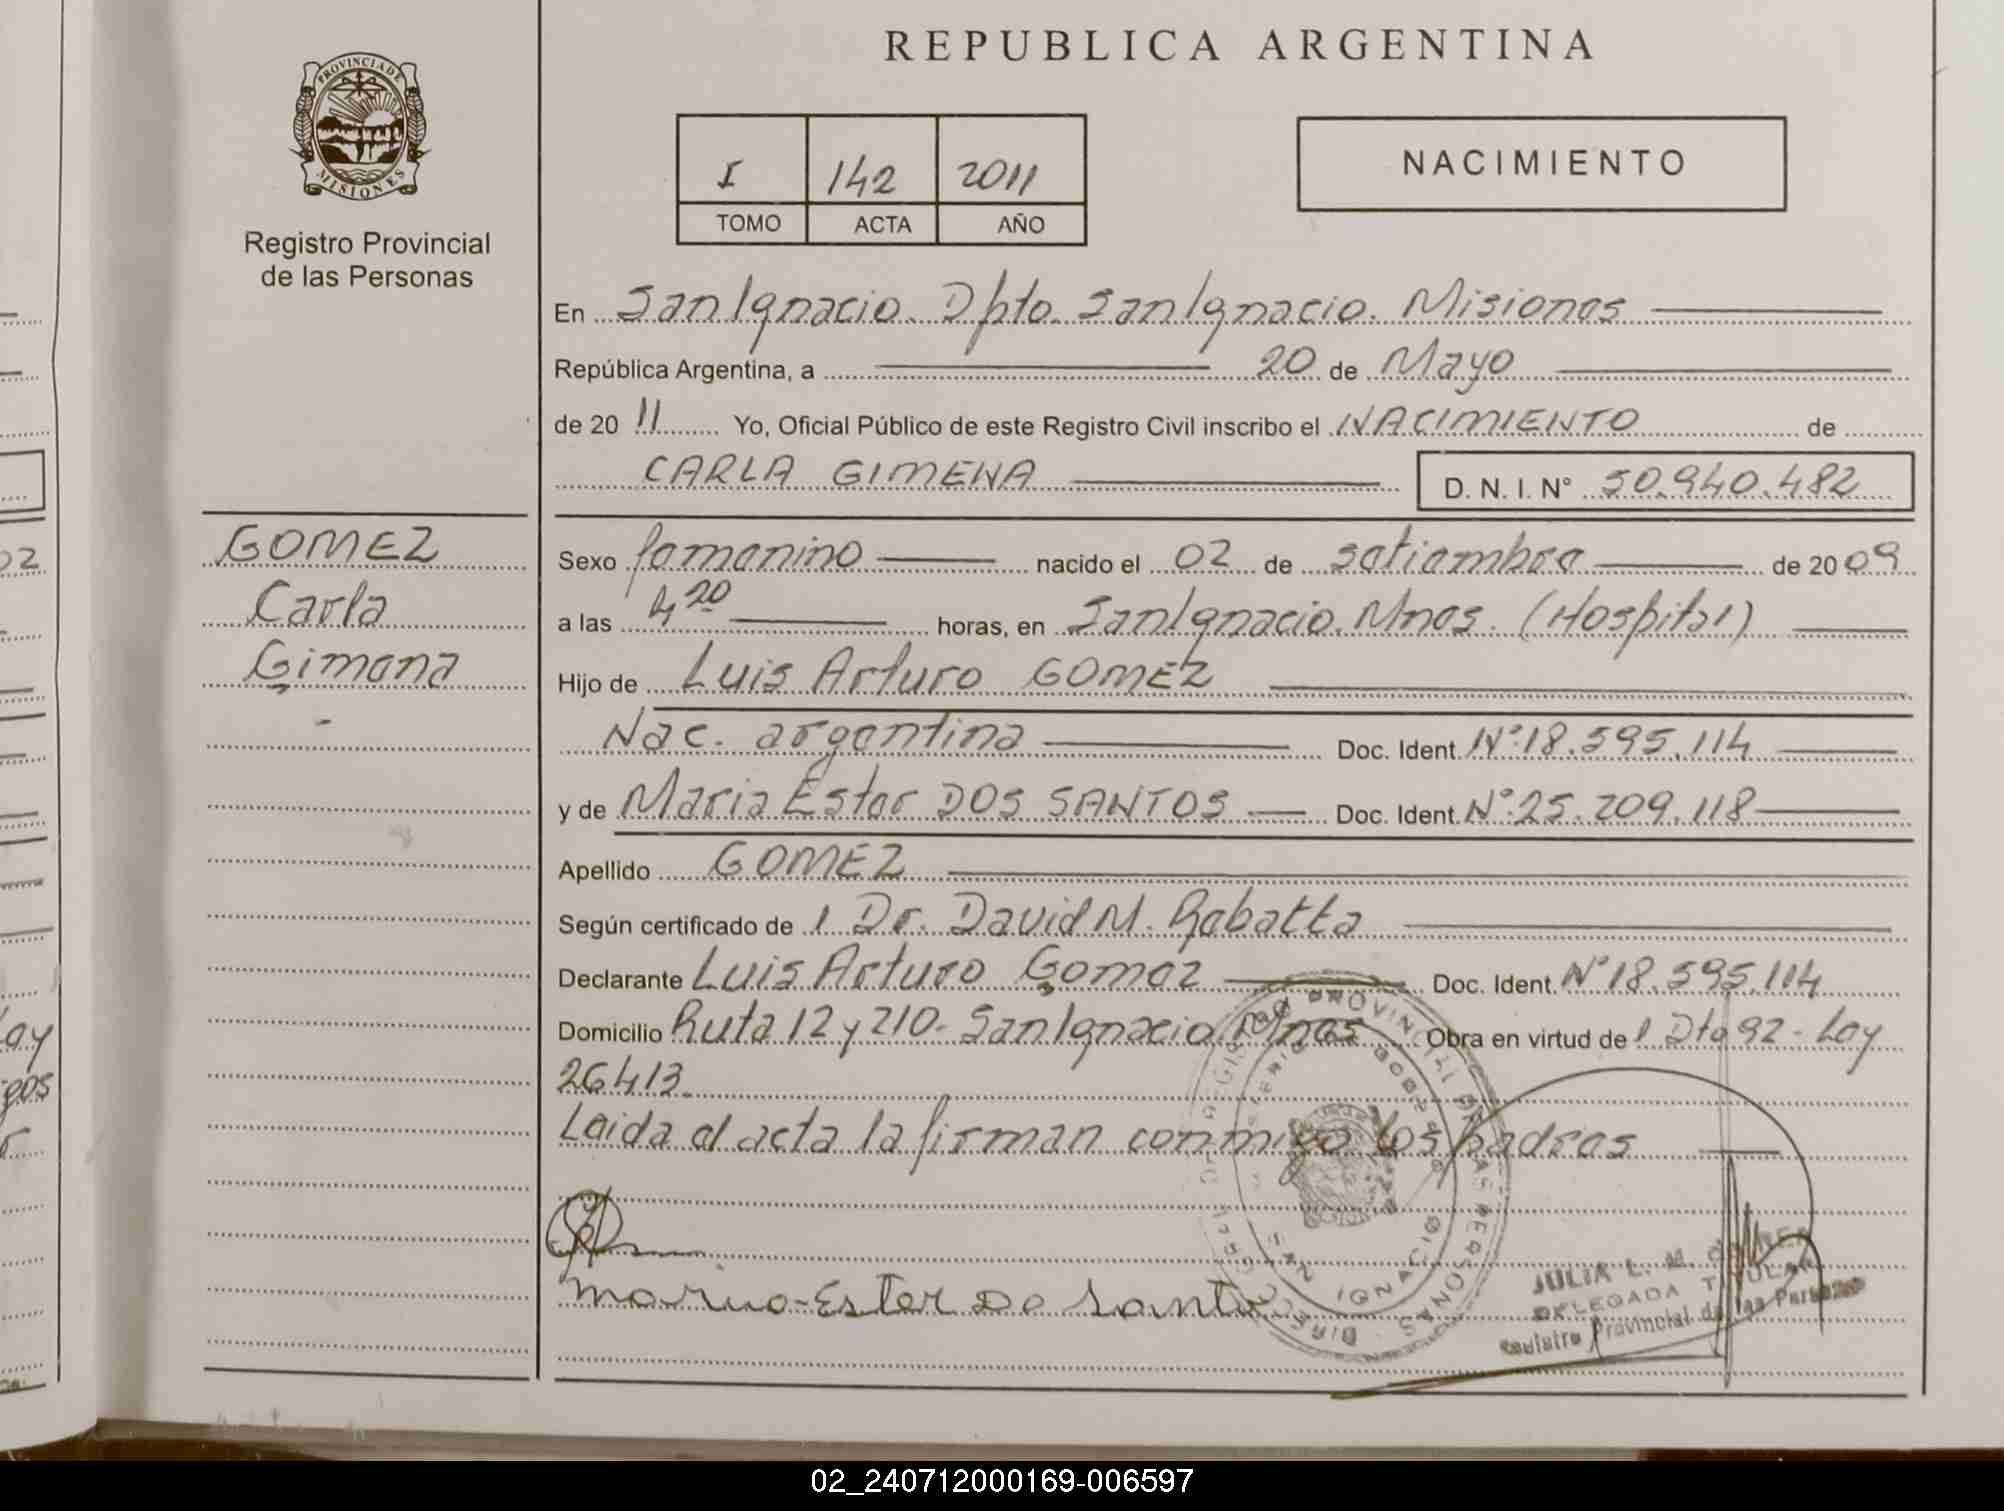 REPUBLICA ARGENTINA
PROVINCIA DE
MISIONES
Registro Provincial
de las Personas
I 142 2011
TOMO ACTA AÑO
NACIMIENTO
En San Ignacio. Dpto. San Ignacio. Misiones
República Argentina, a 20 de Mayo
de 2011 Yo, Oficial Público de este Registro Civil inscribo el NACIMIENTO de
CARLA GIMENA D. N. I. N° 50.940.482
GOMEZ
Carla
Gimena
Sexo femenino nacido el 02 de setiembre de 2009
a las 4 20 horas, en San Ignacio. Mnes. (Hospital)
Hijo de Luis Arturo GOMEZ
Nac. argentina Doc. Ident. N°:18.595.114
y de Maria Ester DOS SANTOS Doc. Ident. N°:25.209.118
Apellido GOMEZ
Según certificado de 1 Dr. David M. Rabatta
Declarante Luis Arturo Gomez Doc. Ident. N°18.595.114
Domicilio Ruta 12 y 210.- San Ignacio. Mnes Obra en virtud de 1 Dto 92 - Ley
26413.
Leida el acta la firman conmigo los padres
maria Ester Do Santo
DIRECCION REGISTRO PROVINCIAL DE LAS PERSONAS
SAN IGNACIO
JULIA L. M.
DELEGADA TITULAR
Registro Provincial de las Personas
02_240712000169-006597